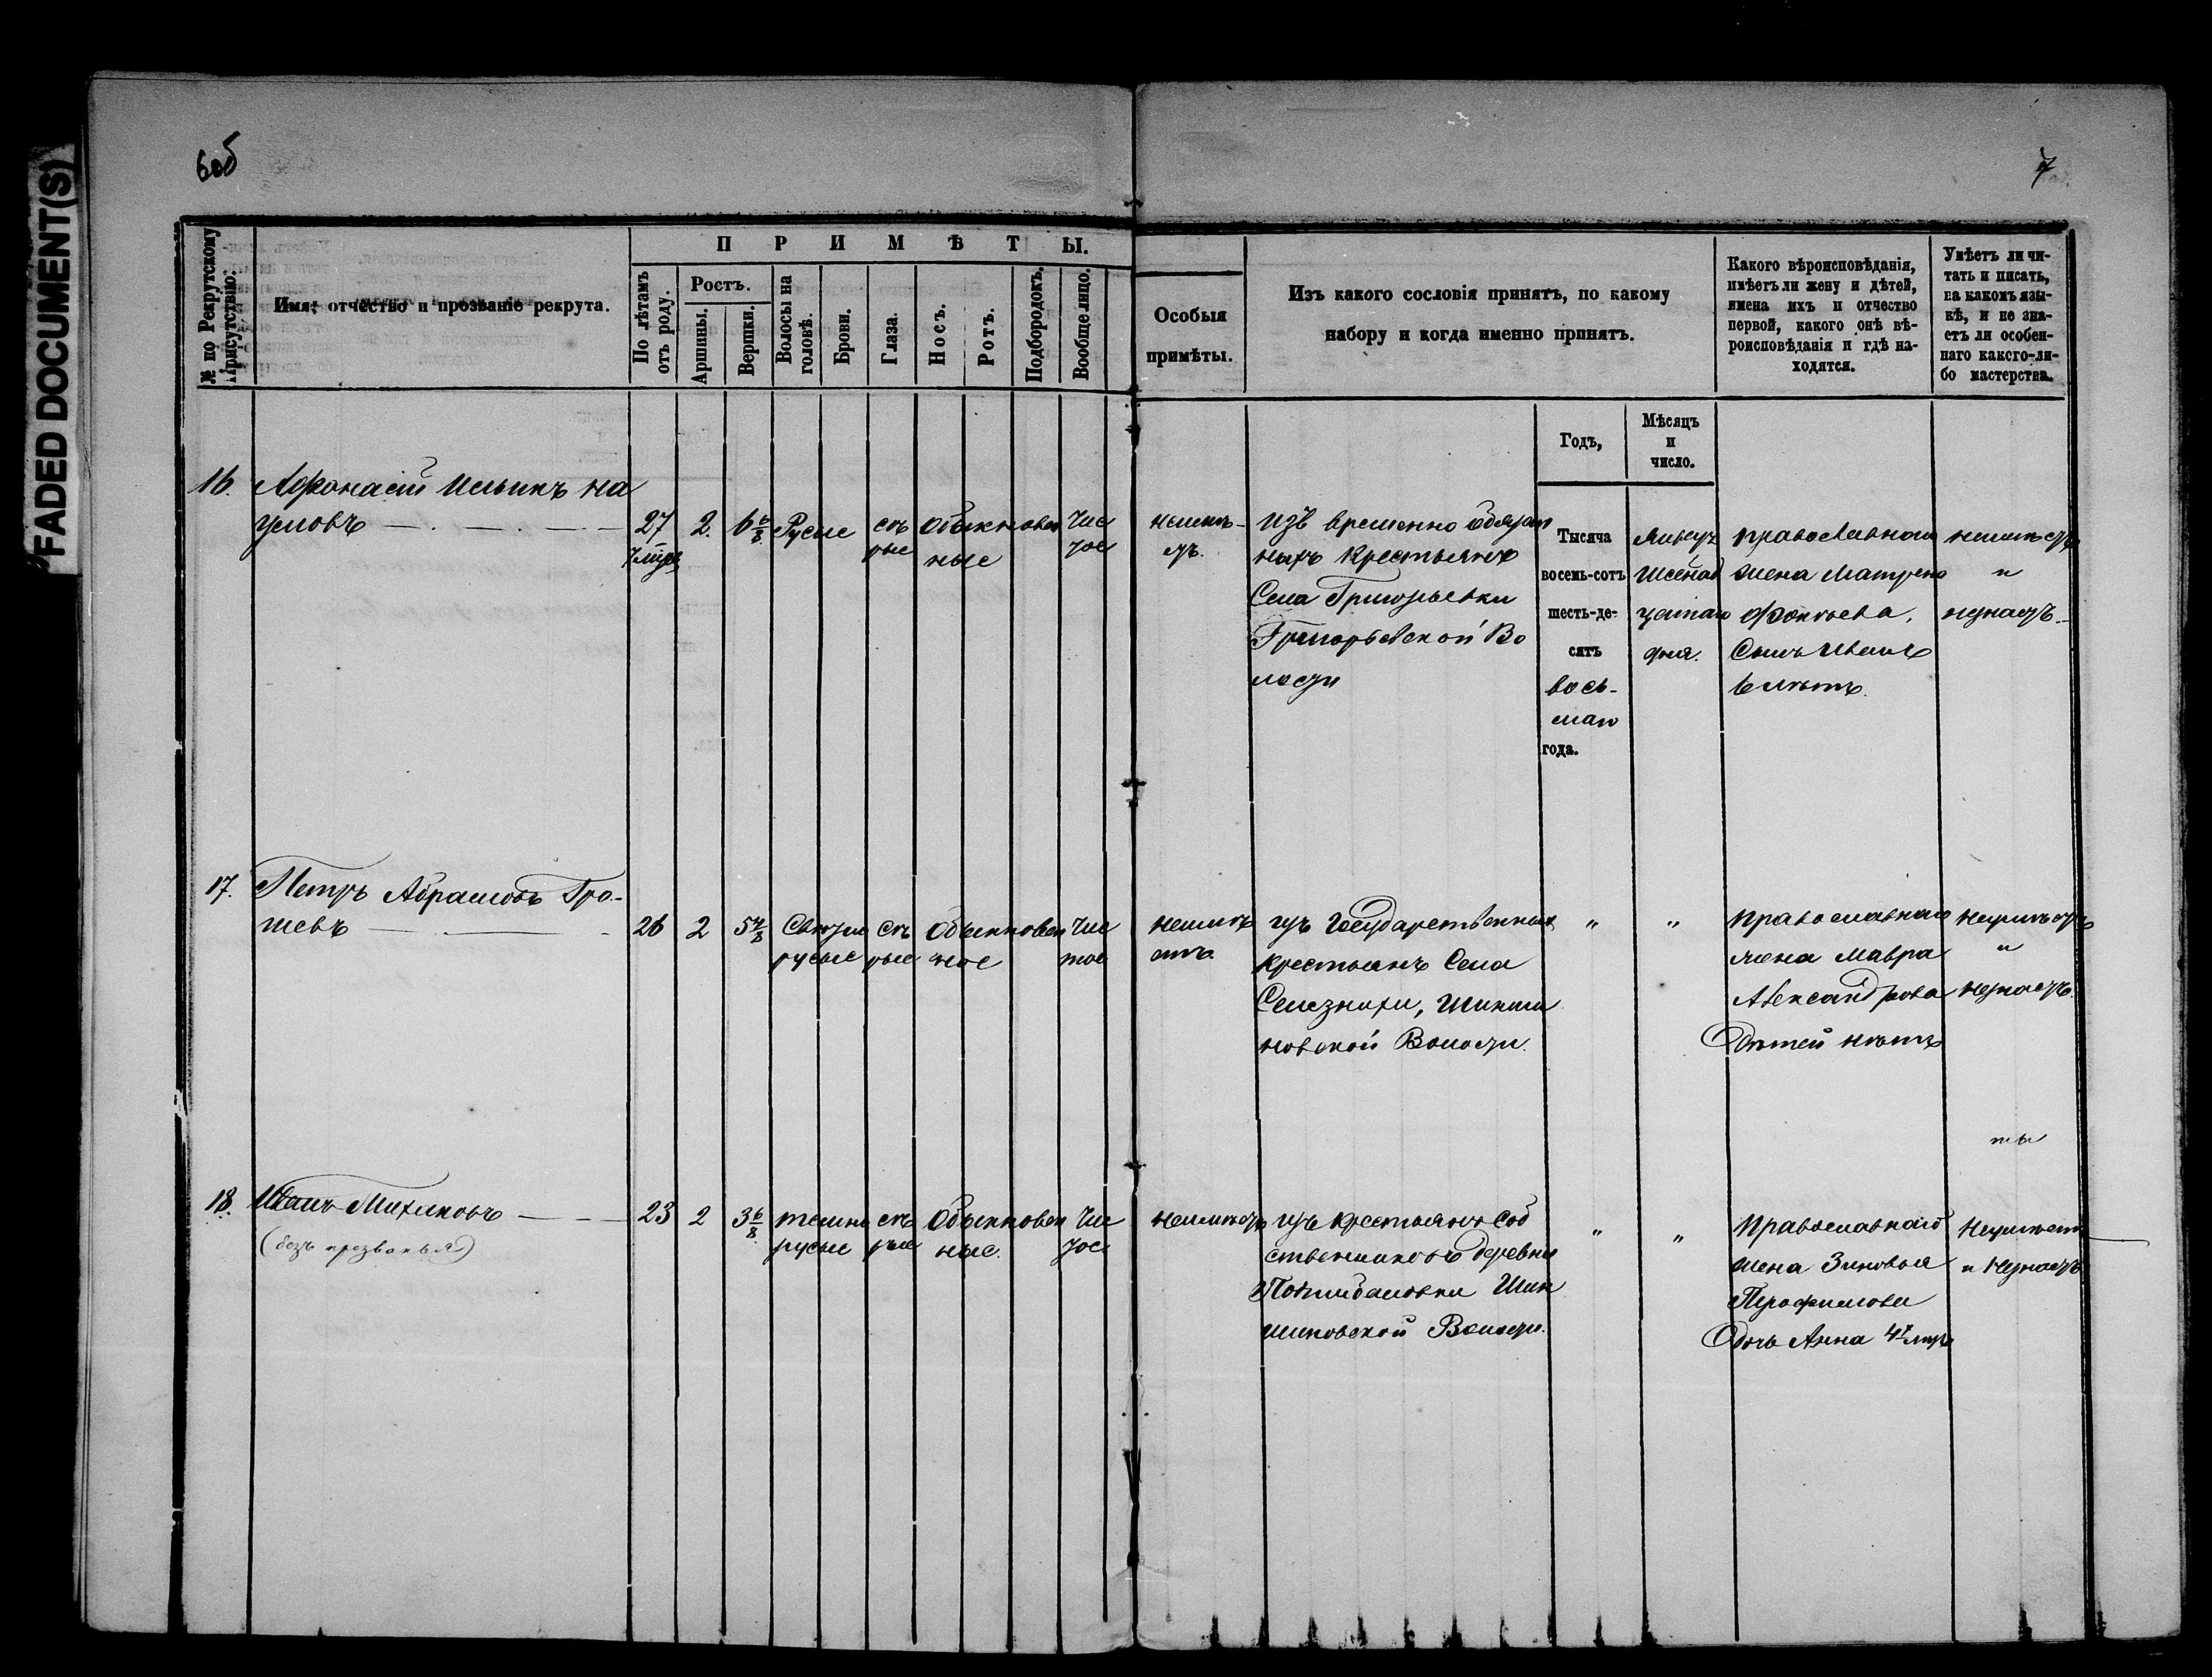 FADED DOCUMENT(S)
6об
7
№ по Рекрутскому Присутствію.
Имя, отчество и прозваніе рекрута.
ПРИМѢТЫ.
По лѣтамъ отъ роду.
Ростъ.
Аршины.
Вершки.
Волосы на головѣ.
Брови.
Глаза.
Носъ.
Ротъ.
Подбородокъ.
Вообще лицо.
Особыя
примѣты.
Изъ какого сословія принятъ, по какому
набору и когда именно принятъ.
Какого вѣроисповѣданія,
имѣетъ ли жену и дѣтей,
имена ихъ и отчество
первой, какого онѣ вѣ-
роисповѣданія и гдѣ на-
ходятся.
Умѣетъ ли чи-
тать и писать,
на какомъ язы-
кѣ, и не зна-
етъ ли особен-
наго какого-ли-
бо мастерства.
Годъ,
Мѣсяцъ
и
число.
16. Афонасій Ильинъ На
умовъ
27
2. 6 6/8 Русые
сѣ
рые
Обыкновен
ные
Чис
тое
неимѣ-
етъ.
Изъ временно обязан
ныхъ крестьянъ
Села Григорьевки
Григорьевской Во
лости
Тысяча
восемь-сотъ
шесть-де-
сятъ
вось-
маго
года.
Генваря
Шеснад
цатаго
дня.
Православнаго
жена Матрена
сынъ Иванъ
6 лѣтъ.
неимѣетъ
и
незнаетъ.
17. Петръ Абрамовъ Гро-
шевъ
26 2
Свѣтло
русые
сѣ
рые
Обыкновен
ное
Чис
тое
неимѣ
етъ.
Изъ Государственныхъ
крестьянъ Села
Селезнихи, Шикши
новской Волости.
" "
Православнаго
жена Мавра
Александрова
дѣтей нѣтъ
неумѣетъ
и
незнаетъ.
ты
18. Иванъ Михѣиковъ
(безъ прозванья)
23 2 3 6/8
темно
русые
сѣ
рые
Обыкновен
ные.
Чис
тое
неимѣетъ
Изъ крестьянъ Соб
ственниковъ деревни
Шик
шиновской Волости.
" "
Православнаго
жена Зиновья
Трофимова
дочь Анна
Неумѣетъ
и незнаетъ